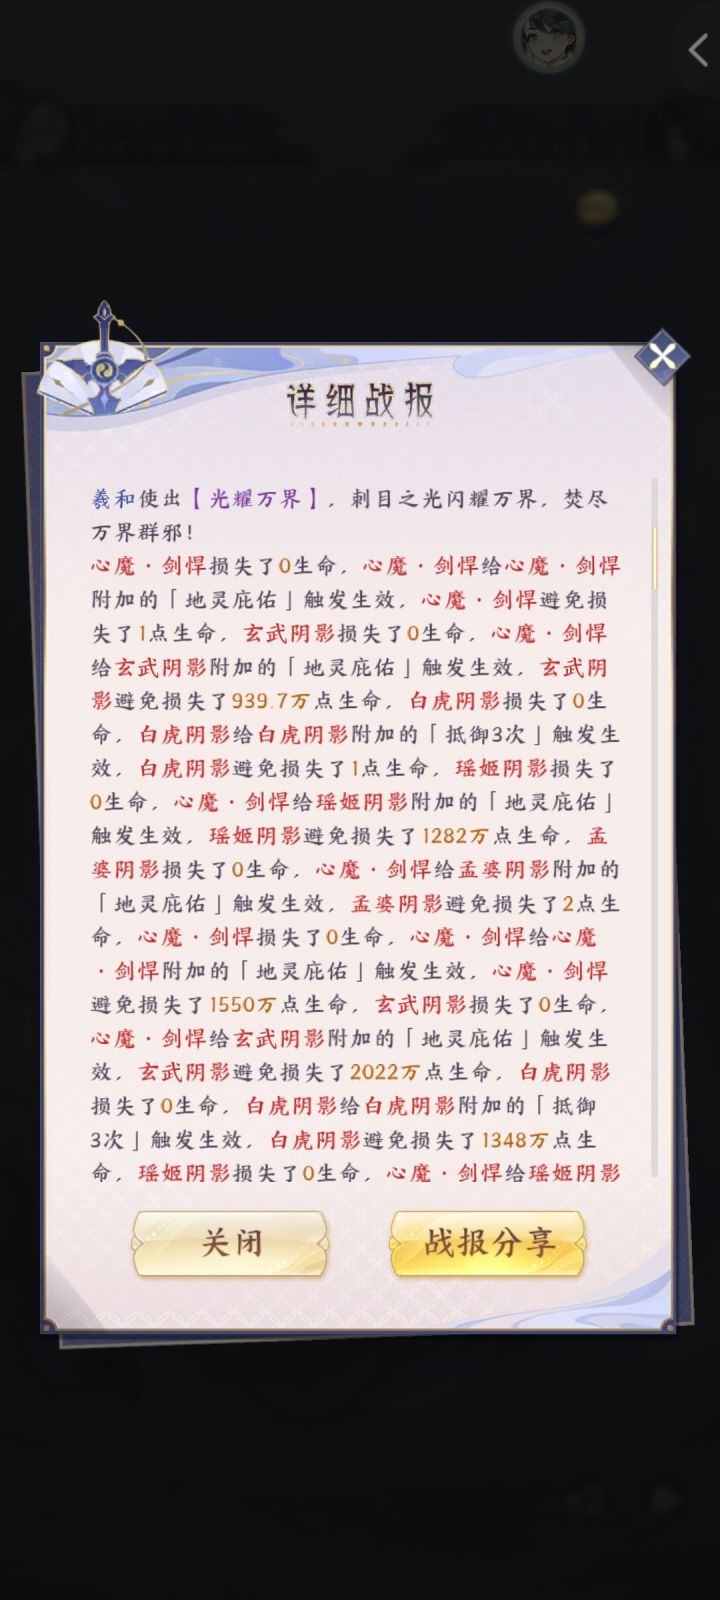 详细战报
羲和使出【光耀万界】，刺目之光闪耀万界，焚尽
万界群邪！
心魔·剑悍损失了0生命，心魔·剑悍给心魔·剑悍
附加的「地灵庇佑」触发生效，心魔·剑悍避免损
失了1点生命，玄武阴影损失了0生命，心魔·剑悍
给玄武阴影附加的「地灵庇佑」触发生效，玄武阴
影避免损失了939.7万点生命，白虎阴影损失了0生
命，白虎阴影给白虎阴影附加的「抵御3次」触发生
效，白虎阴影避免损失了1点生命，瑶姬阴影损失了
0生命，心魔·剑悍给瑶姬阴影附加的「地灵庇佑」
触发生效，瑶姬阴影避免损失了1282万点生命，孟
婆阴影损失了0生命，心魔·剑悍给孟婆阴影附加的
「地灵庇佑」触发生效，孟婆阴影避免损失了2点生
命，心魔·剑悍损失了0生命，心魔·剑悍给心魔
·剑悍附加的「地灵庇佑」触发生效，心魔·剑悍
避免损失了1550万点生命，玄武阴影损失了0生命，
心魔·剑悍给玄武阴影附加的「地灵庇佑」触发生
效，玄武阴影避免损失了2022万点生命，白虎阴影
损失了0生命，白虎阴影给白虎阴影附加的「抵御
3次」触发生效，白虎阴影避免损失了1348万点生
命，瑶姬阴影损失了0生命，心魔·剑悍给瑶姬阴影
关闭
战报分享